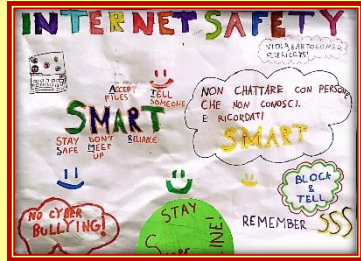 INTERNET SAFETY
ACCEPT
FILES
TELL
SOMEONE
SMART
STAY
SAFE
DON'T
MEET
UP
RELIABLE
NON CHATTARE CON PERSONE
CHE NON CONOSCI.
E RICORDATI
SMART
NO CYBER
BULLYING!
STAY
BLOCK
&
TELL
REMEMBER SSS